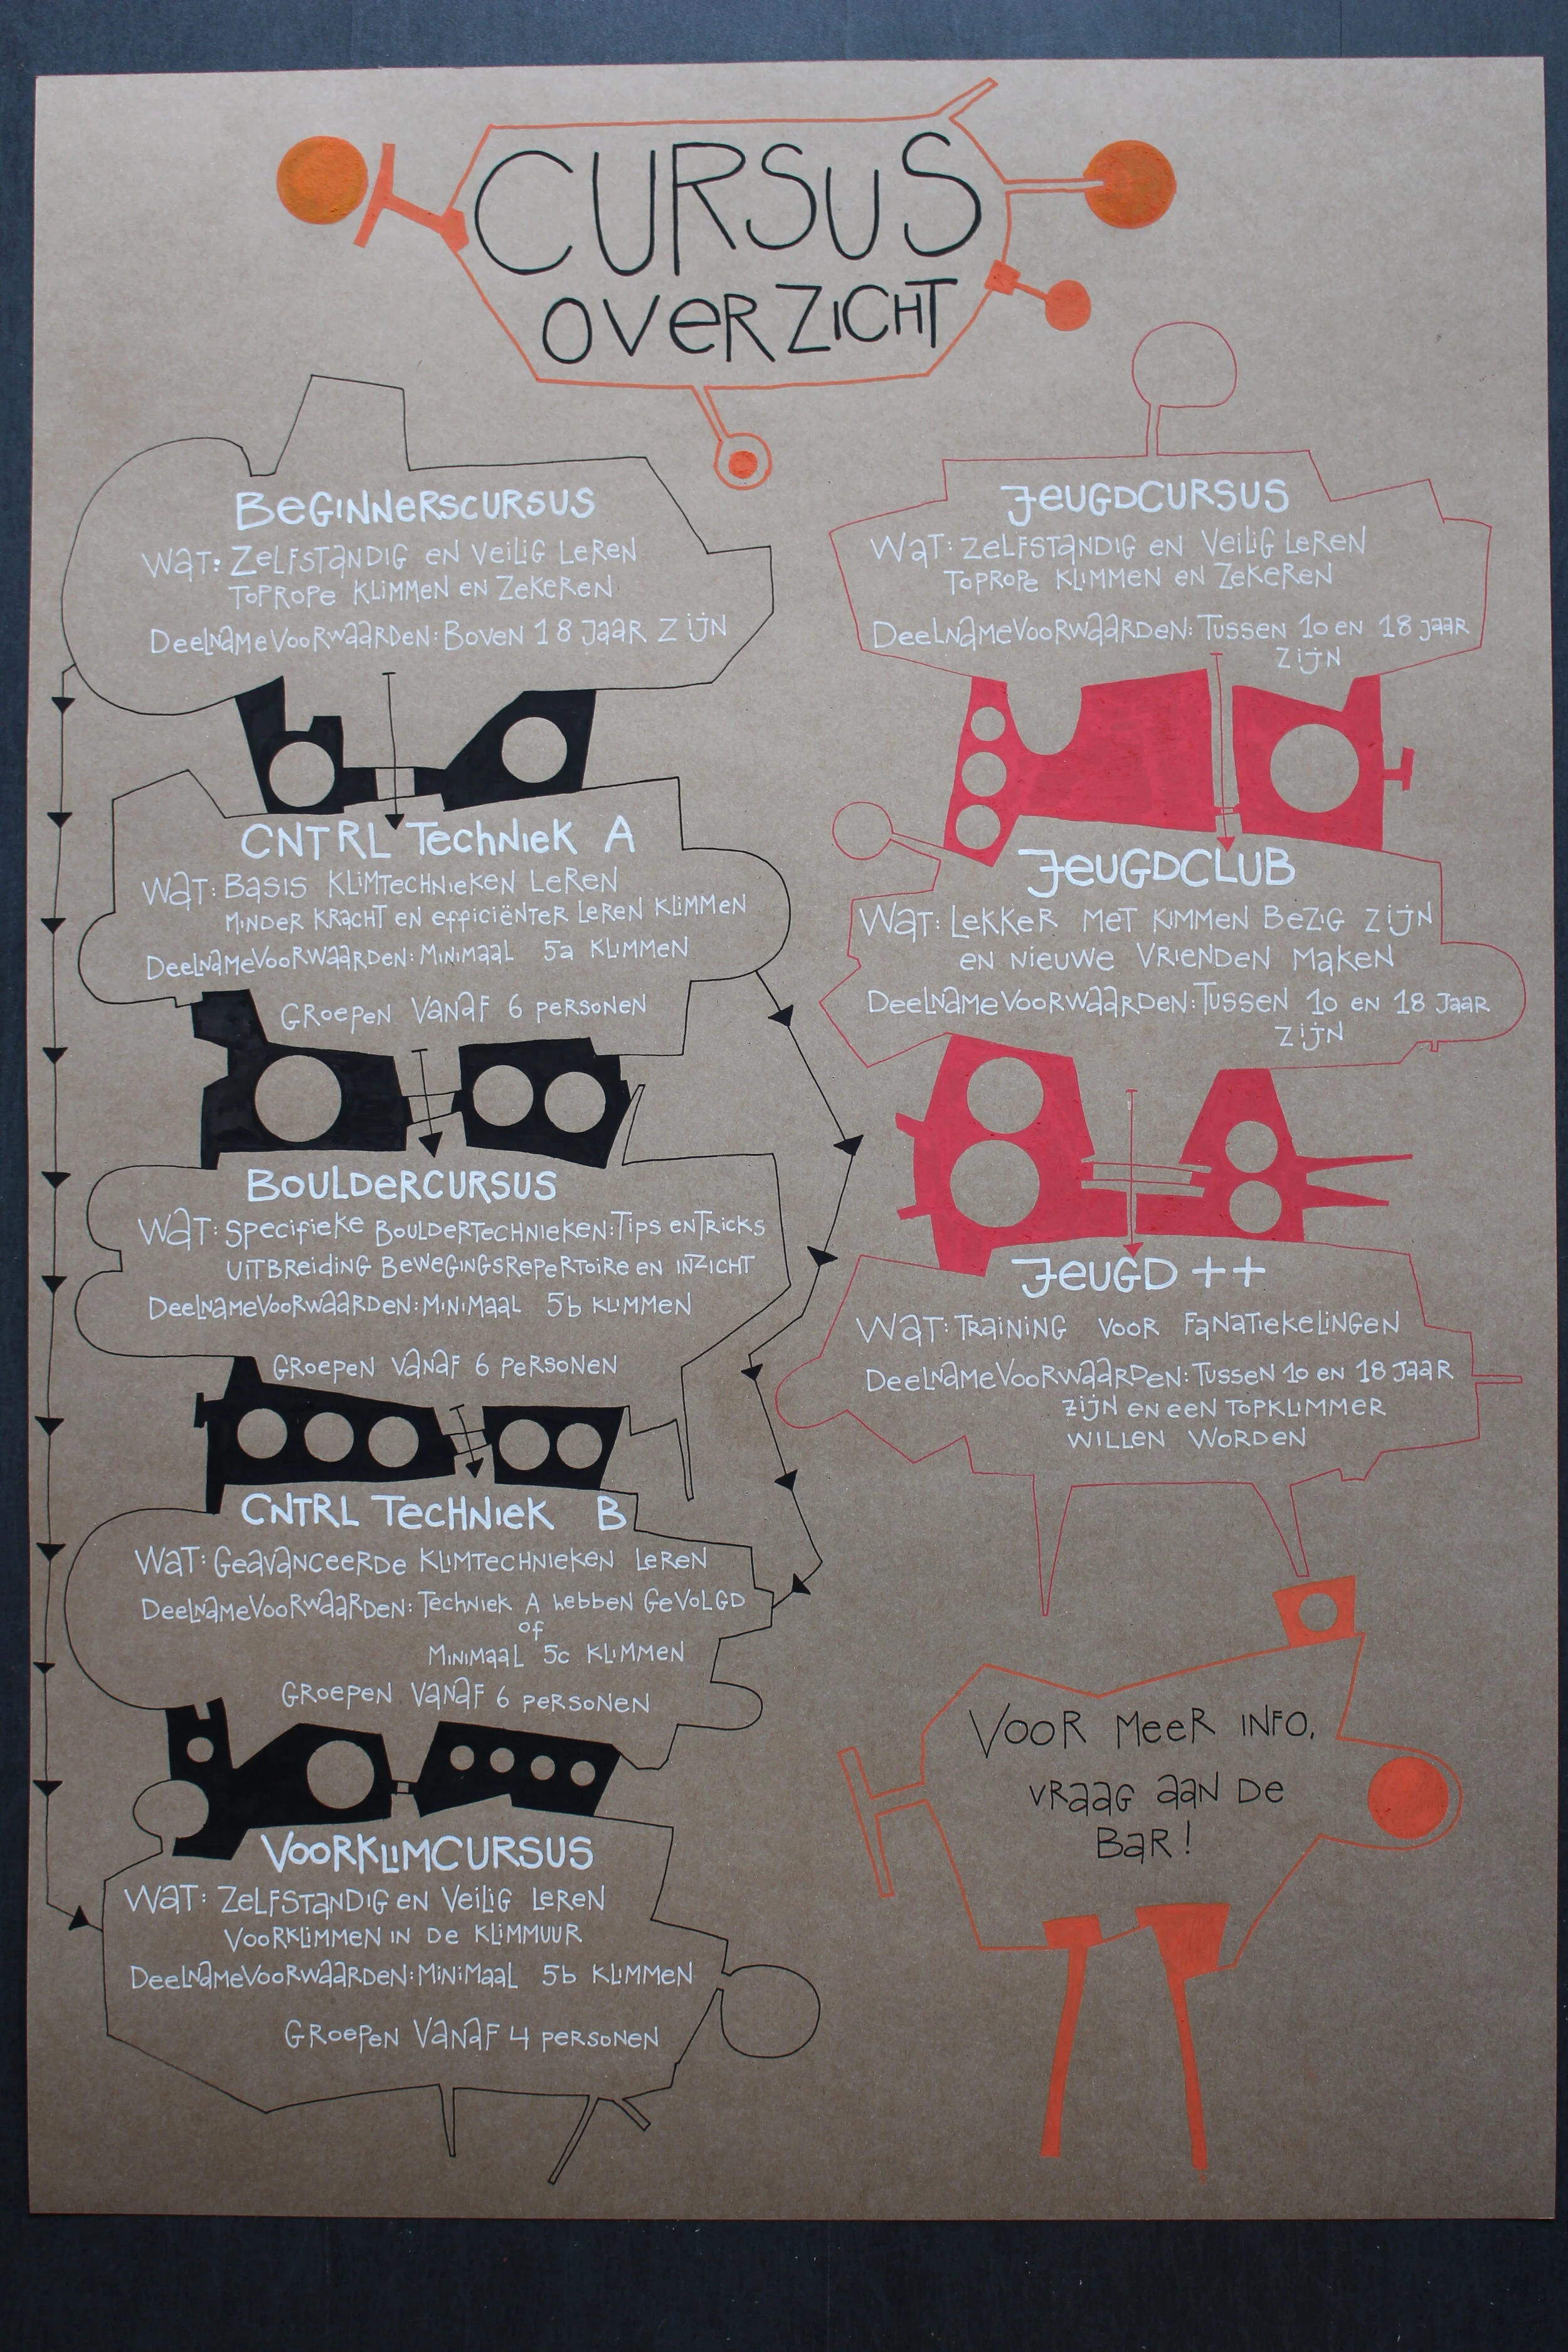 CURSUS
OVERZICHT
BEGINNERSCURSUS
WAT: ZELFSTANDIG EN VEILIG LEREN
TOPROPE KLIMMEN EN ZEKEREN
DEELNAMEVOORWAARDEN: BOVEN 18 JAAR ZIJN
CNTRL TECHNIEK A
WAT: BASIS KLIMTECHNIEKEN LEREN
MINDER KRACHT EN EFFICIËNTER LEREN KLIMMEN
DEELNAMEVOORWAARDEN: MINIMAAL 5a KLIMMEN
GROEPEN VANAF 6 PERSONEN
BOULDERCURSUS
WAT: SPECIFIEKE BOULDERTECHNIEKEN: TIPS EN TRICKS
UITBREIDING BEWEGINGSREPERTOIRE EN INZICHT
DEELNAMEVOORWAARDEN: MINIMAAL 5b KLIMMEN
GROEPEN VANAF 6 PERSONEN
CNTRL TECHNIEK B
WAT: GEAVANCEERDE KLIMTECHNIEKEN LEREN
DEELNAMEVOORWAARDEN: TECHNIEK A HEBBEN GEVOLGD
OF
MINIMAAL 5c KLIMMEN
GROEPEN VANAF 6 PERSONEN
VOORKLIMCURSUS
WAT: ZELFSTANDIG EN VEILIG LEREN
VOORKLIMMEN IN DE KLIMMUUR
DEELNAMEVOORWAARDEN: MINIMAAL 5b KLIMMEN
GROEPEN VANAF 4 PERSONEN
JEUGDCURSUS
WAT: ZELFSTANDIG EN VEILIG LEREN
TOPROPE KLIMMEN EN ZEKEREN
DEELNAMEVOORWAARDEN: TUSSEN 10 EN 18 JAAR
ZIJN
JEUGDCLUB
WAT: LEKKER MET KIMMEN BEZIG ZIJN
EN NIEUWE VRIENDEN MAKEN
DEELNAMEVOORWAARDEN: TUSSEN 10 EN 18 JAAR
ZIJN
JEUGD ++
WAT: TRAINING VOOR FANATIEKELINGEN
DEELNAMEVOORWAARDEN: TUSSEN 10 EN 18 JAAR
ZIJN EN EEN TOPKLIMMER
WILLEN WORDEN
VOOR MEER INFO,
VRAAG AAN DE
BAR!